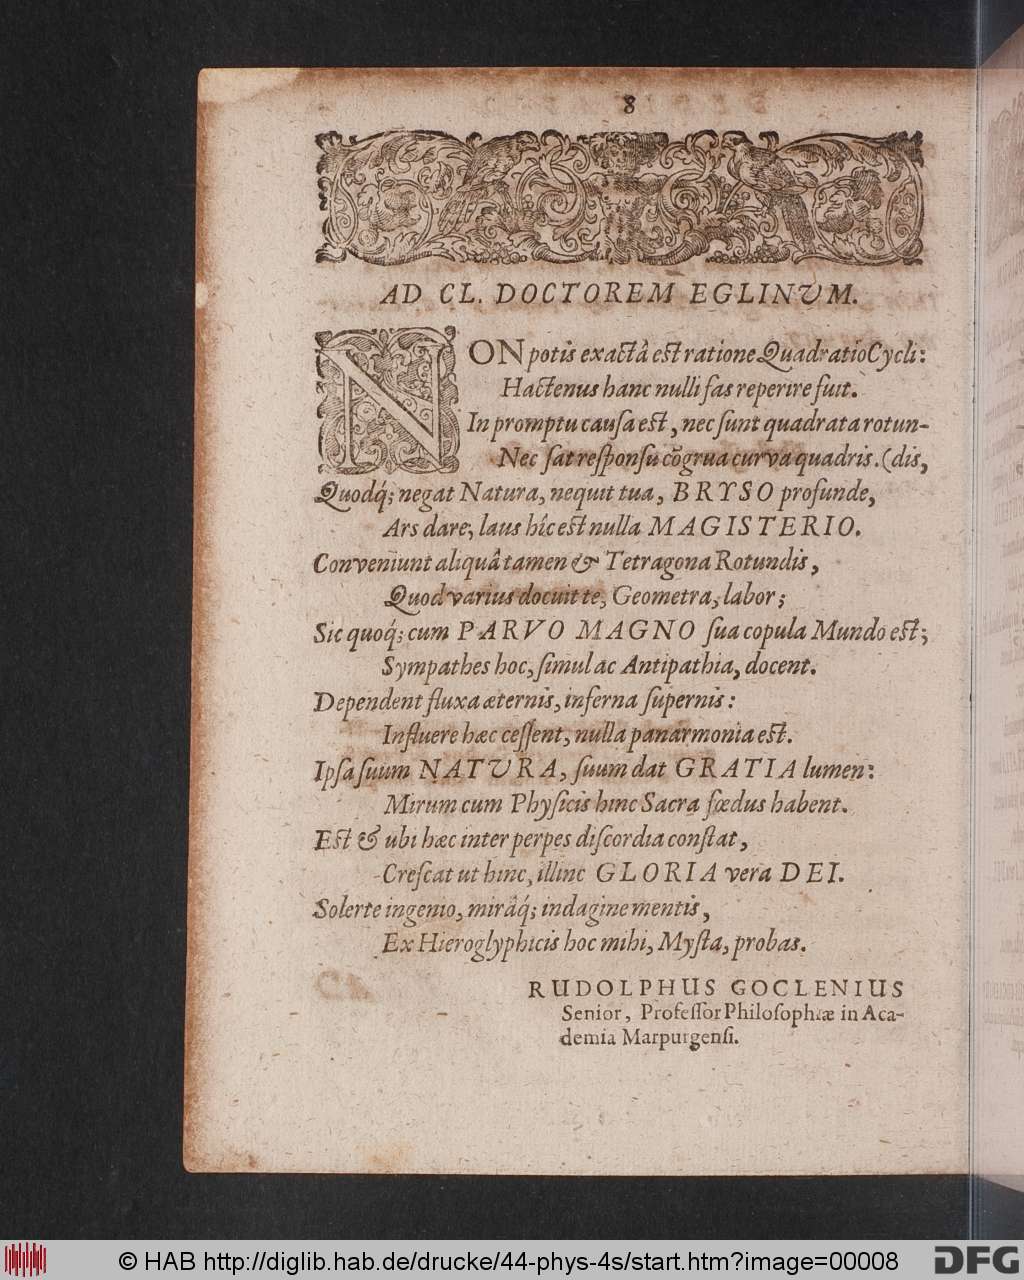 8
AD CL. DOCTOREM EGLINVM.
NON potis exactâ est ratione Quadratio Cycli:
Hactenus hanc nulli fas reperire fuit.
In promptu causa est, nec sunt quadrata rotun-
Nec sat responsu cõgrua curva quadris. (dis,
Quodq́; negat Natura, nequit tua, BRYSO profunde,
Ars dare, laus hîc est nulla MAGISTERIO.
Conveniunt aliquâ tamen & Tetragona Rotundis,
Quod varius docuit te, Geometra, labor;
Sic quoq́; cum PARVO MAGNO sua copula Mundo est;
Sympathes hoc, simul ac Antipathia, docent.
Dependent fluxa æternis, inferna supernis:
Influere hæc cessent, nulla panarmonia est.
Ipsa suum NATVRA, suum dat GRATIA lumen:
Mirum cum Physicis hinc Sacra fœdus habent.
Est & ubi hæc inter perpes discordia constat,
Crescat ut hinc, illinc GLORIA vera DEI.
Solerte ingenio, mirâq́; indagine mentis,
Ex Hieroglyphicis hoc mihi, Mysta, probas.
RUDOLPHUS GOCLENIUS
Senior, Professor Philosophiæ in Aca-
demia Marpurgensi.
© HAB http://diglib.hab.de/drucke/44-phys-4s/start.htm?image=00008
DFG